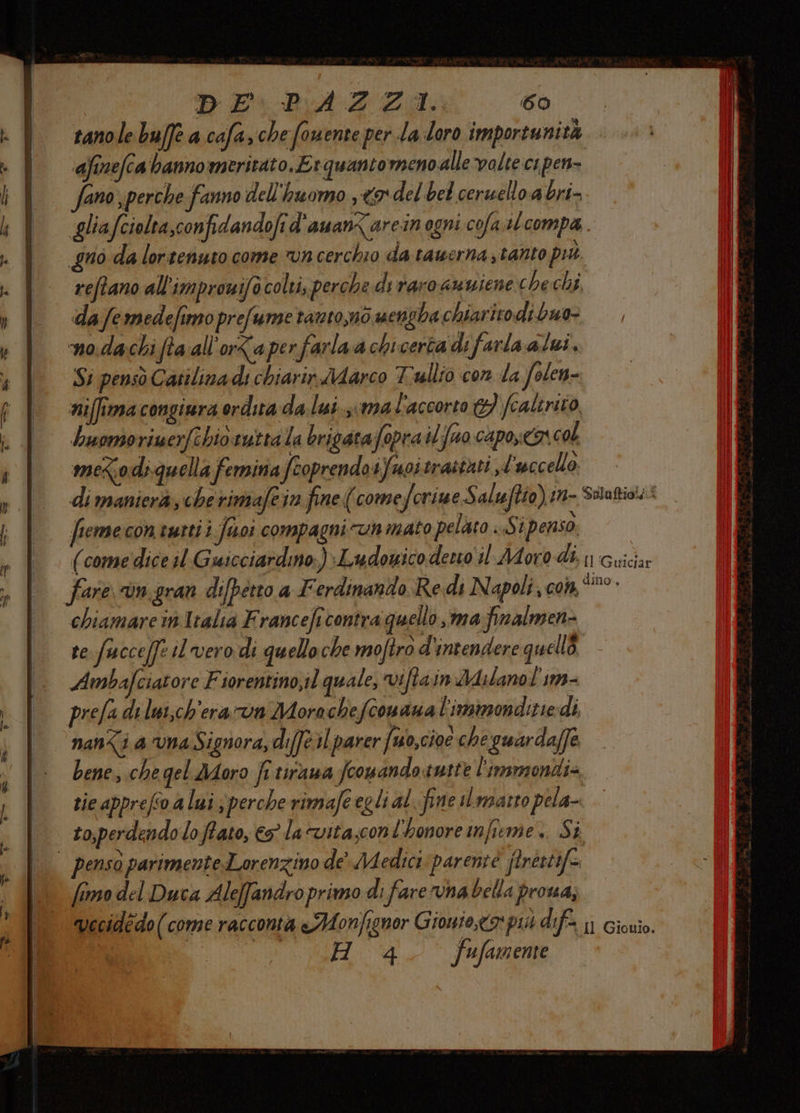 DE' PAZZI. 60
tano le buffe a casa, che souente per la loro importunità
afinesca hanno meritato. Et quanto meno alle volte ci pen-
sano, perche fanno dell'huomo, & del bel ceruello a bri-
glia sciolta, confidandosi d'auanzare in ogni cosa il compa
gnō da lor tenuto come vn cerchio da tauerna, tanto più
restano all'improuisō colti, perche di raro auuiene che chi
da se medesimo presume tanto, nō uengha chiarito di buo-
no. da chi sta all'orza per farla a chi cerca di farla a lui.
Si pensò Catilina di chiarir Marco Tullio con la solen-
nissima congiura ordita da lui, ma l'accorto & scaltrito
huomo riuerschiò tutta la brigata sopra il suo capo, & col
mezo di quella femina scoprendo i suoi trattati, l'uccellò
di maniera, che rimase in fine (come scriue Salustio) in- Salustio.
sieme con tutti i suoi compagni vn mato pelato. Si pensò
(come dice il Guicciardino) Ludouico detto il Moro di Guiciar
fare vn gran dispetto a Ferdinando Re di Napoli, con dino.
chiamare in Italia Francesi contra quello, ma finalmen-
te successe il vero di quello che mostrò d'intendere quellō
Ambasciatore Fiorentino, il quale, vista in Milano l'im-
presa di lui, ch'era vn Moro che scouaua l'immonditie di
nanzi a vna Signora, disse il parer suo, cioè che guardasse
bene, che qel Moro si tiraua scouando tutte l'immondi-
tie appresso a lui, perche rimase egli al fine il matto pela-
to, perdendo lo stato, & la vita, con l'honore insieme. Si
pensò parimente Lorenzino de' Medici parente strettis-
simo del Duca Alessandro primo di fare vna bella proua,
vccidēdo (come racconta Monsignor Giouio, & più dif- Giouio.
H 4 fusamente